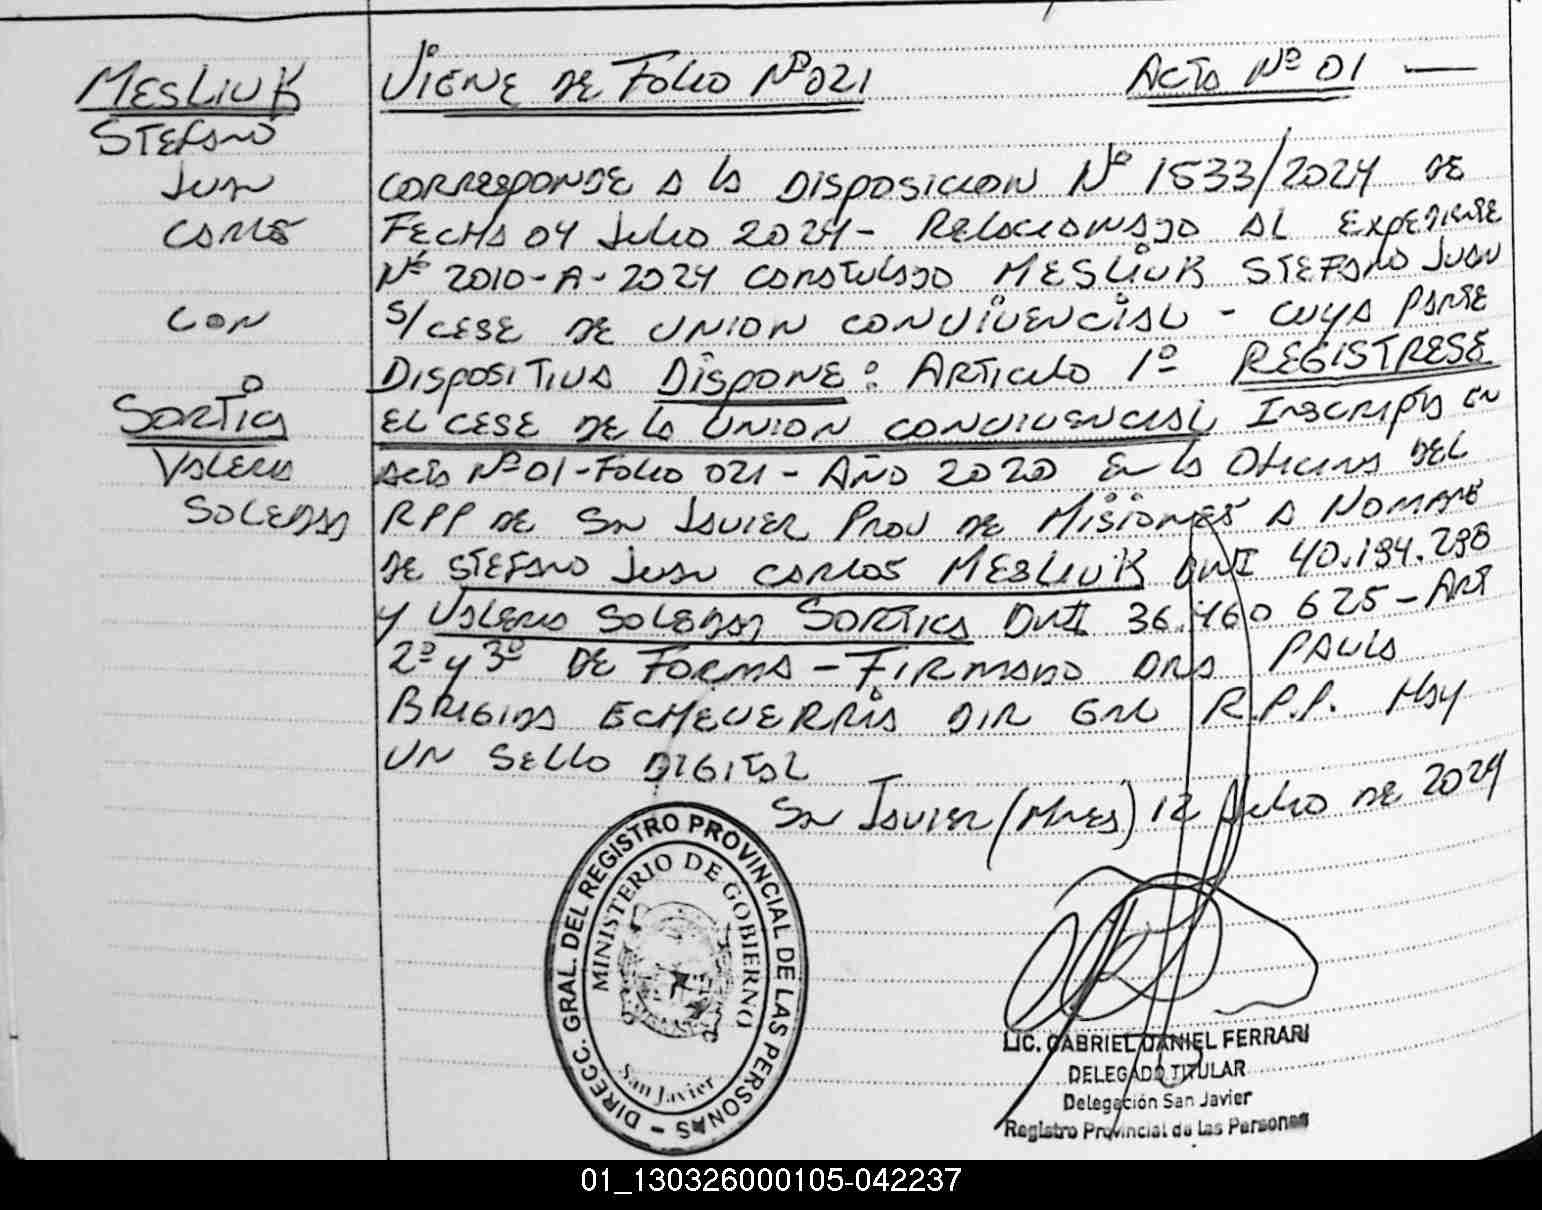 MESLIUK
STEFANO
JUAN
CARLOS
CON
SORTICA
VALERIA
SOLEDAD
VIENE DE FOLIO Nº 021 ACTA Nº 01 —
CORRESPONDE A LA DISPOSICION Nº 1533/2024 DE
FECHA 04 JULIO 2024 - RELACIONADO AL EXPEDIENTE
Nº 2010-A-2024 CARATULADO MESLIUK STEFANO JUAN
S/CESE DE UNION CONVIVENCIAL - CUYA PARTE
DISPOSITIVA DISPONE: ARTICULO 1º REGISTRESE
EL CESE DE LA UNION CONVIVENCIAL INSCRIPTA EN
ACTA Nº 01 - FOLIO 021 - AÑO 2020 EN LA OFICINA DEL
RPP DE SAN JAVIER PROV DE MISIONES A NOMBRE
DE STEFANO JUAN CARLOS MESLIUK DNI 40.194.298
Y VALERIA SOLEDAD SORTICA DNI 36.460 625 - ART
2º Y 3º DE FORMA - FIRMADO DRA PAULA
BRIGIDA ECHEVERRIA DIR GRL R.P.P. HAY
UN SELLO DIGITAL
SAN JAVIER (MNES) 12 JULIO DE 2024
DIRECC. GRAL. DEL REGISTRO PROVINCIAL DE LAS PERSONAS -
MINISTERIO DE GOBIERNO
San Javier
LIC. GABRIEL DANIEL FERRARI
DELEGADO TITULAR
Delegación San Javier
Registro Provincial de las Personas
01_130326000105-042237